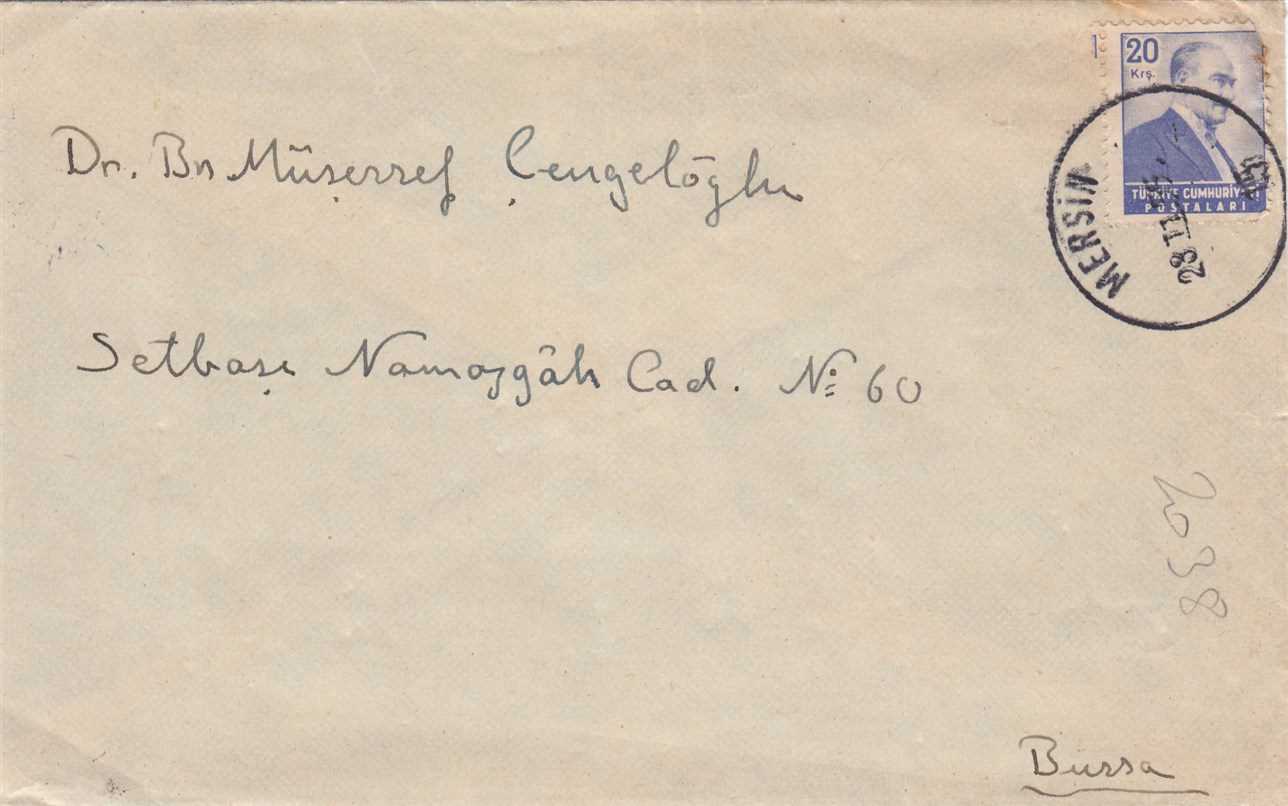 20
Krş.
TÜRKİYE CUMHURİYETİ
POSTALARI
MERSİN
28
Dr. Bn Müşerref Çengeloğlu
Setbaşı Namazgâh Cad. No: 60
2038
Bursa